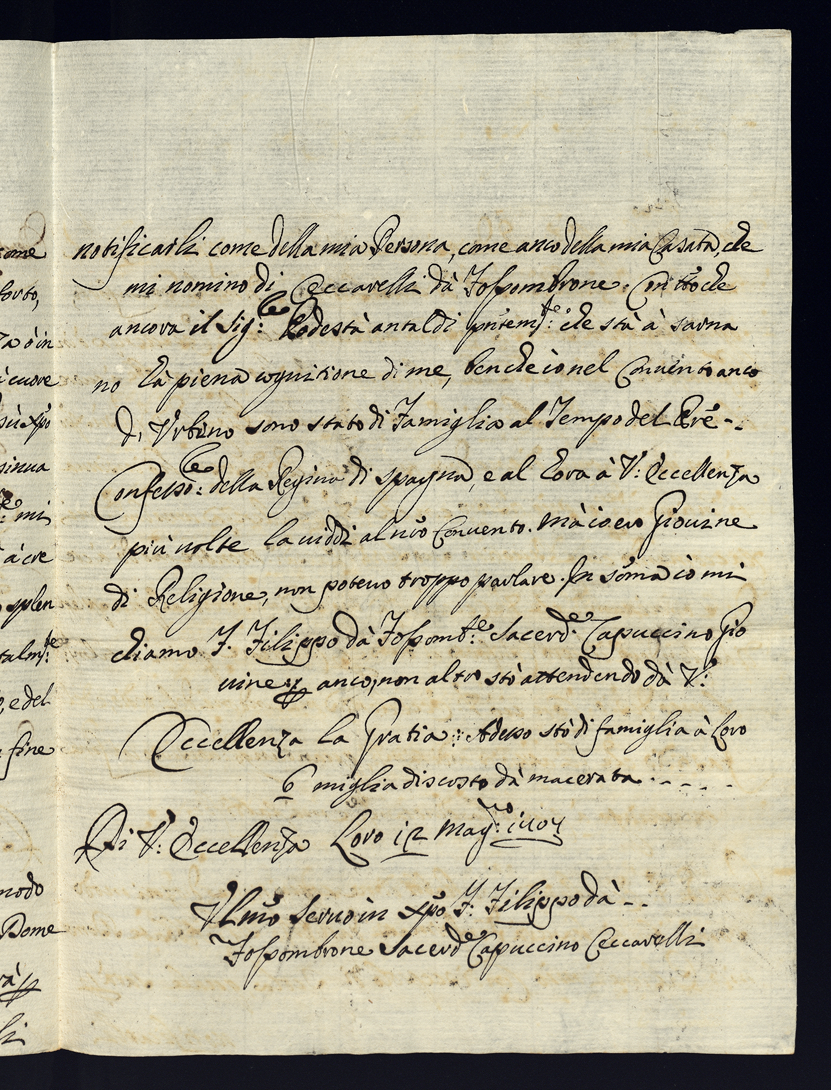 notificarli come della mia Persona, come anco della mia Casata, che
mi nomino di Ceccarelli dà Fossombrone. Con tto che
ancora il Sig:le Podestà antaldi che stà à sarna
no hà piena cognitione di me, benche io nel Convento anco
d'Urbino sono stato di Famiglia al Tempo del Pre--
Confesso:le della Regina di spagna, e al hora à V: Eccellenza
più volte la viddi al nro Convento. Mà io ero Giovine
di Religione, non potevo troppo parlare. In soma io mi
chiamo F. Filippo dà Fossomb:e Sacerd:e Capuccino Gio
vine anco, non altro stò attendendo dà V:
Eccellenza la Gratia: Adesso stò di famiglia à Loro
6 miglia discosto dà macerata - - - -
Di V: Eccellenza Loro 12 Mag:o 1704
Vlmo Servo in Xpo F. Filippo dà --
Fossombrone Sacerd:e Capuccino Ceccarelli
ome
forto,
cuore
sù Xpo
tinua
mi
splen
talm:te
, e del
fine
modo
Dome